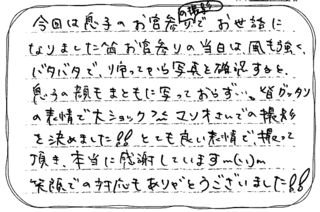 今回は息子のお宮参りの撮影でお世話に
なりました。お宮参りの当日は、風も強く、
バタバタで、帰ってから写真を確認すると、
息子の顔もまともに写っておらず…。皆ガッカリ
の表情で大ショック
マリオさんでの撮影
を決めました!! とても良い表情で、撮って
頂き、本当に感謝していますm(_ _)m
笑顔での対応もありがとうございました!!